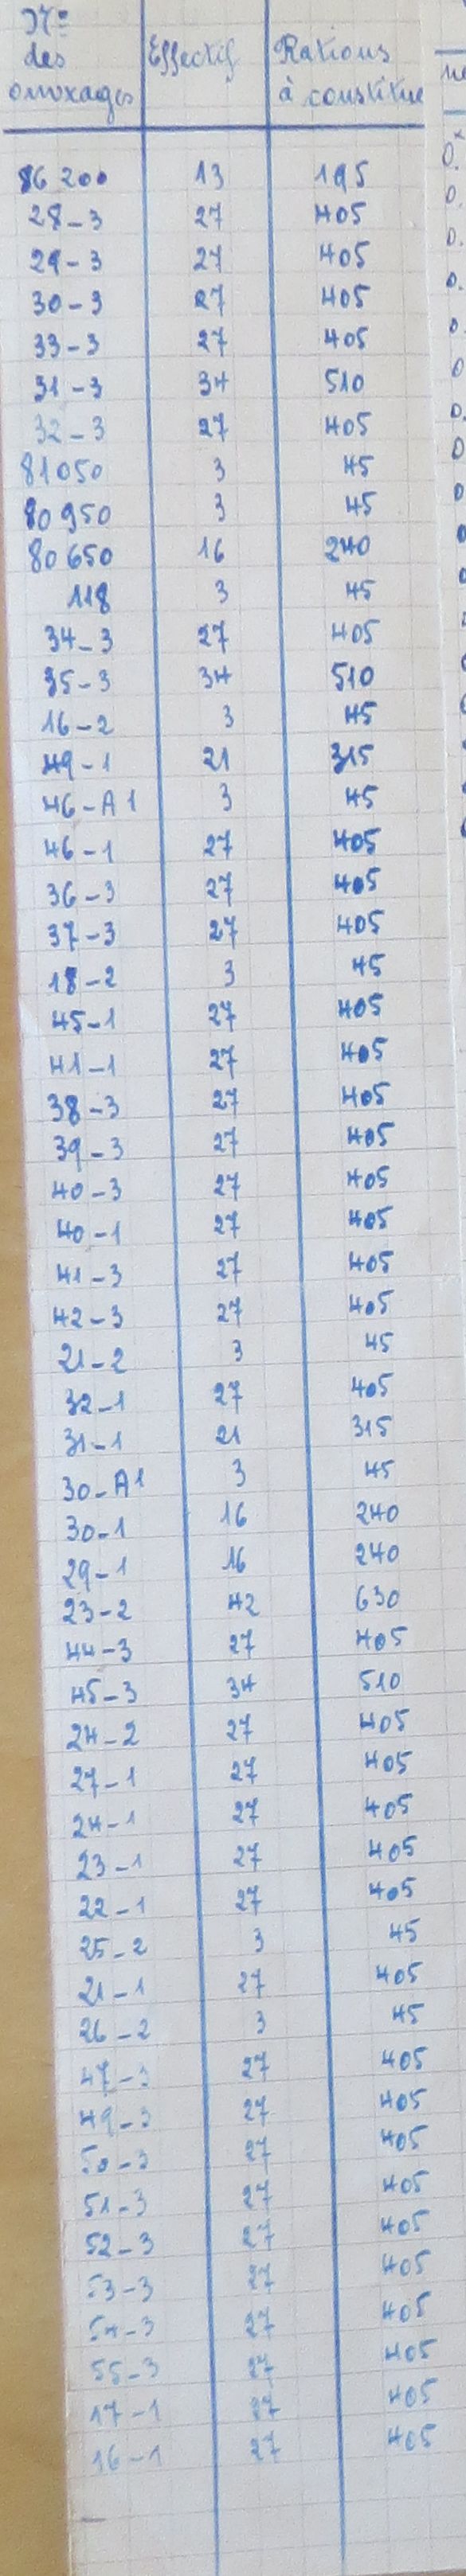 Nos Effectif Rations
des
ouvrages à constitue
86 200 13 195
28-3 27 405
29-3 27 405
30-3 27 405
33-3 27 405
31-3 34 510
32-3 27 405
81050 3 45
80950 3 45
80650 16 240
118 3 45
34-3 27 405
35-3 34 510
16-2 3 45
49-1 21 315
46-A1 3 45
46-1 27 405
36-3 27 405
37-3 27 405
18-2 3 45
45-1 27 405
41-1 27 405
38-3 27 405
39-3 27 405
40-3 27 405
40-1 27 405
41-3 27 405
42-3 27 405
21-2 3 45
32-1 27 405
31-1 21 315
30-A1 3 45
30-1 16 240
29-1 16 240
23-2 42 630
44-3 27 405
45-3 34 510
24-2 27 405
27-1 27 405
24-1 27 405
23-1 27 405
22-1 27 405
25-2 3 45
21-1 27 405
26-2 3 45
47-3 27 405
49-3 27 405
50-3 27 405
51-3 27 405
52-3 27 405
53-3 27 405
54-3 27 405
55-3 27 405
17-1 27 405
16-1 27 405